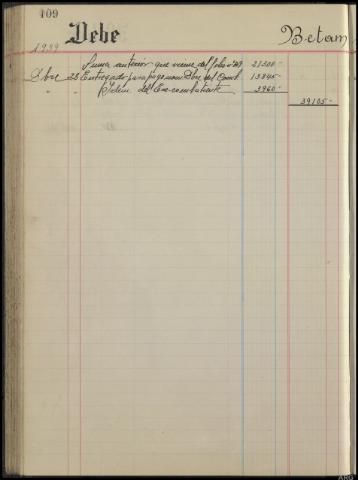 109
Debe
Betan
1939
Suma anterior que viene del folio nº 21300-
Dbre 23 Entregado para pago nom. Dbre del Comb 13845-
" " Idem del Ex-combatiente 3960-
39105-